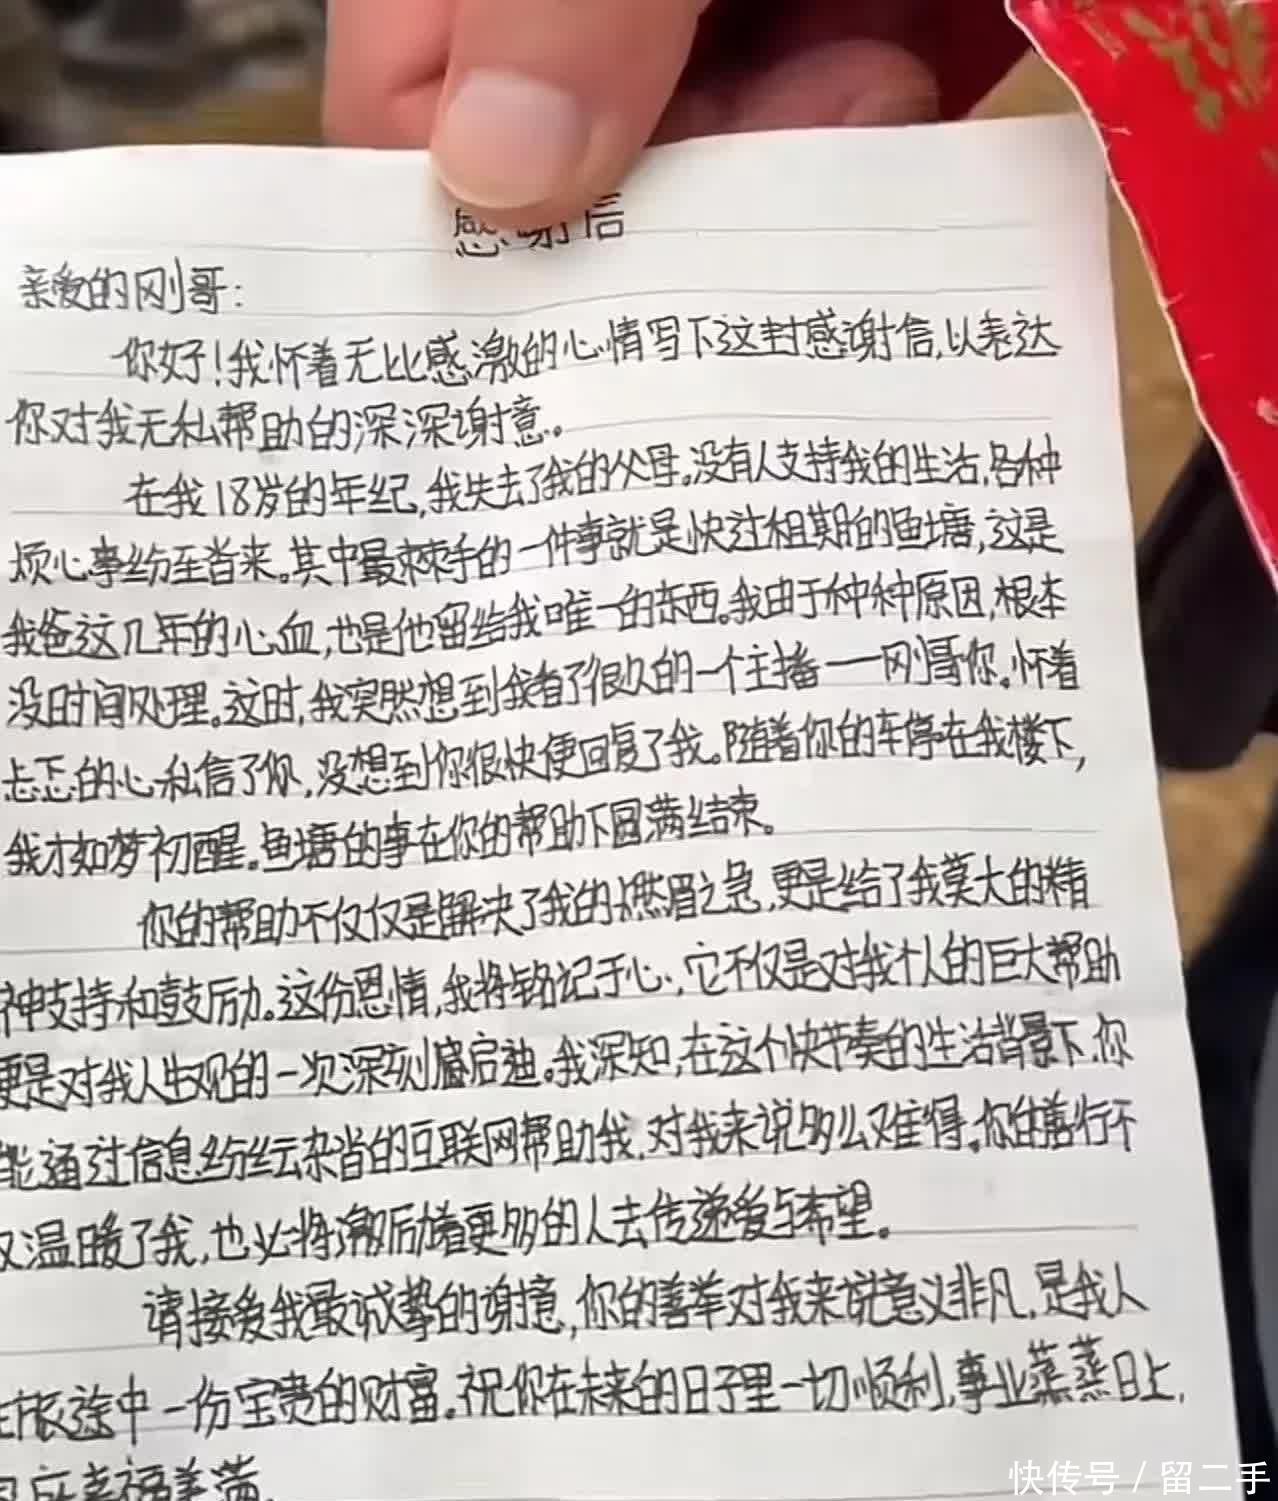 感谢信
亲爱的刚哥：
你好！我怀着无比感激的心情写下这封感谢信，以表达
你对我无私帮助的深深谢意。
在我18岁的年纪，我失去了我的父母。没有人支持我的生活，各种
烦心事纷至沓来。其中最棘手的一件事就是快过租期的鱼塘，这是
我爸这几年的心血，也是他留给我唯一的东西。我由于种种原因，根本
没时间处理。这时，我突然想到我看了很久的一个主播——刚哥你。怀着
忐忑的心私信了你，没想到你很快便回复了我。随着你的车停在我楼下，
我才如梦初醒。鱼塘的事在你的帮助下圆满结束。
你的帮助不仅仅是解决了我的燃眉之急，更是给了我莫大的精
神支持和鼓励。这份恩情，我将铭记于心，它不仅是对我个人的巨大帮助
更是对我人生观的一次深刻启迪。我深知，在这个快节奏的生活背景下，你
能通过信息纷纭杂沓的互联网帮助我，对我来说多么难得。你的善行不
仅温暖了我，也必将激励着更多的人去传递爱与希望。
请接受我最诚挚的谢意，你的善举对我来说意义非凡，是我人
生旅途中一份宝贵的财富。祝你在未来的日子里一切顺利，事业蒸蒸日上，
家庭幸福美满。
快传号 / 留二手